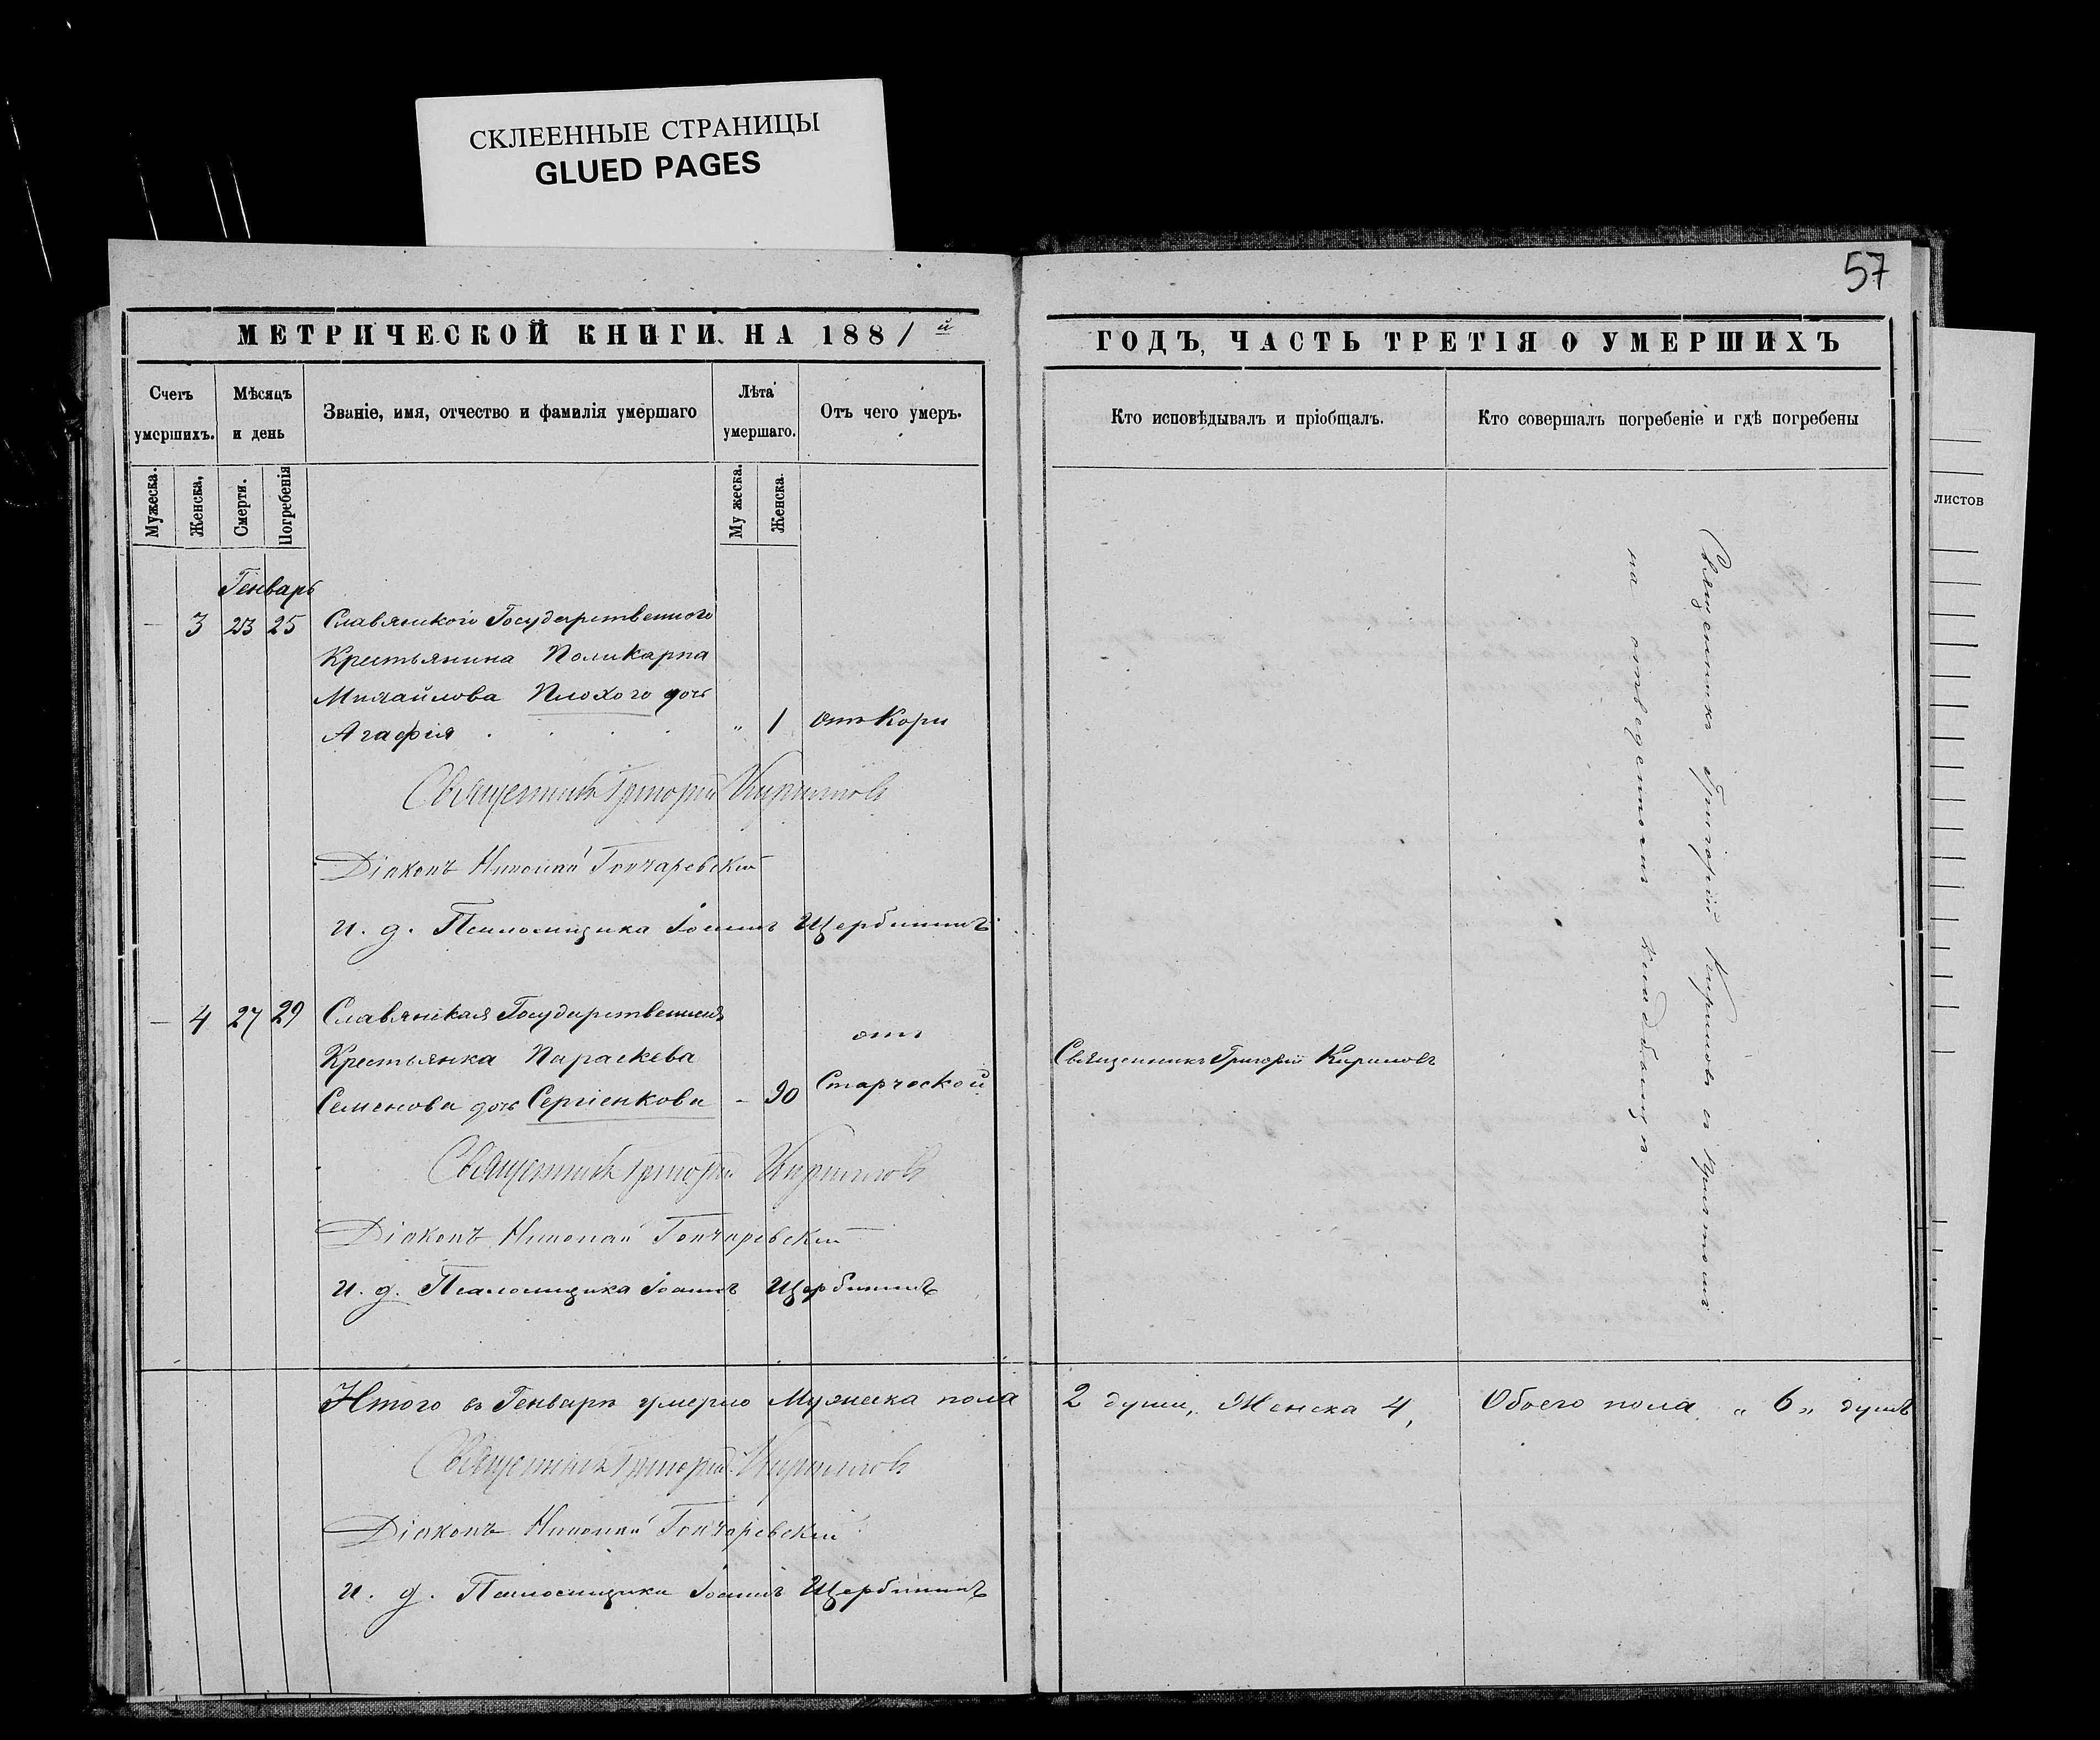 СКЛЕЕННЫЕ СТРАНИЦЫ
GLUED PAGES
57
МЕТРИЧЕСКОЙ КНИГИ НА 1881й
ГОДЪ, ЧАСТЬ ТРЕТІЯ О УМЕРШИХЪ
Счетъ умершихъ.
Мѣсяцъ и день
Званіе, имя, отчество и фамилія умершаго
Лѣта умершаго.
Отъ чего умеръ.
Кто исповѣдывалъ и пріобщалъ.
Кто совершалъ погребеніе и гдѣ погребены
Мужеска.
Женска,
Смерти.
Погребенія
Му жеска.
Женска.
листов
Генварь
— 3 23 25 Славянскаго Государственного
Крестьянина Поликарпа
Михайлова Плохого дочь
Агафія „ 1 отъ Кори
Священникъ Григорій Кириловъ
Діаконъ Николай Гончаревскій
и. д. Псаломщика Іоаннъ Щербининъ
— 4 27 29 Славянская Государственная
Крестьянка Параскева
Семенова дочь Сергіенкова – 90
отъ
Старческой
Священникъ Григорій Кириловъ
Священникъ Григорій Кириловъ
Діаконъ Николай Гончаревскій
и. д. Псаломщика Іоаннъ Щербининъ
Священникъ Григорій Кириловъ съ Причтомъ
на отведенномъ кладбищѣ
Итого въ Генварѣ умерло Мужеска пола 2 души, Женска 4, Обоего пола „ 6 „ душъ
Священникъ Григорій Кириловъ
Діаконъ Николай Гончаревскій
и. д. Псаломщика Іоаннъ Щербининъ